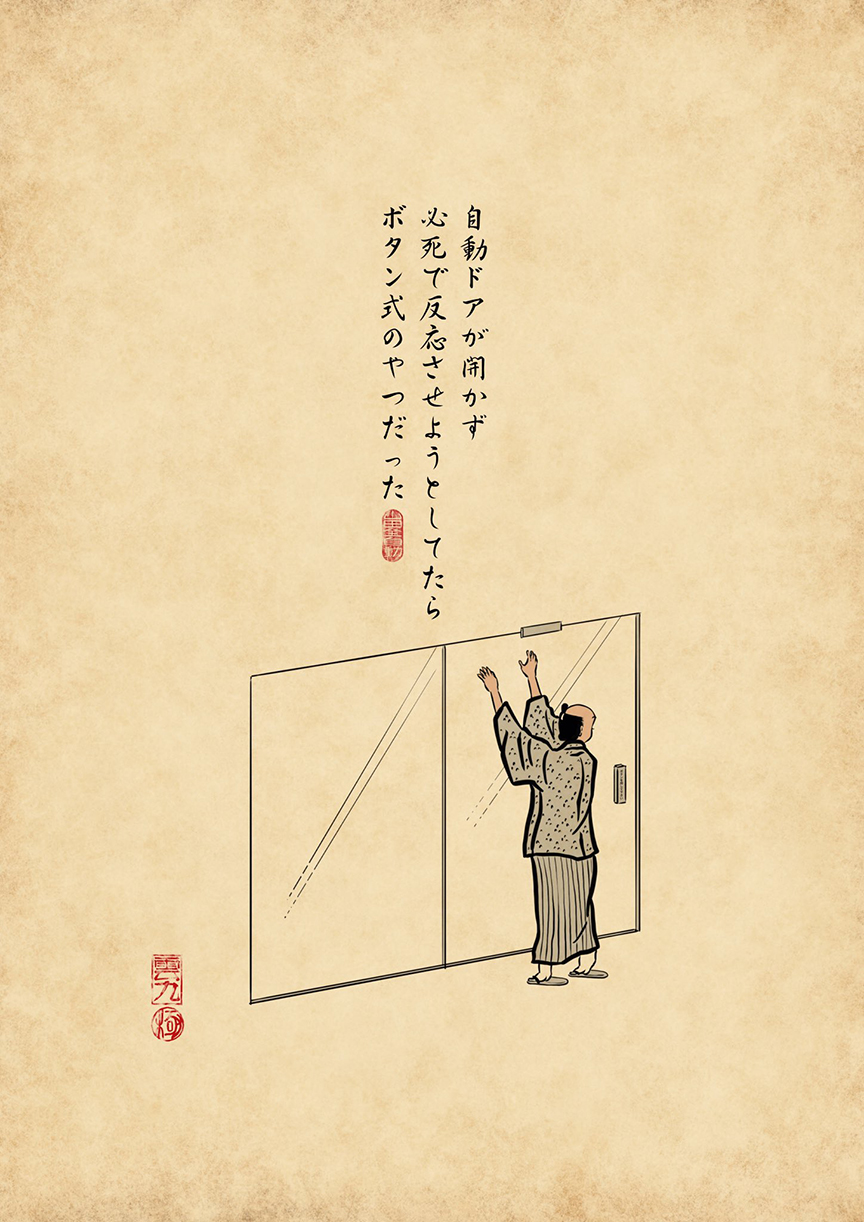 自動ドアが開かず
必死で反応させようとしてたら
ボタン式のやつだった